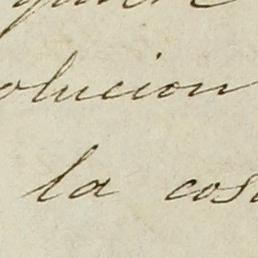 olucion
la cos